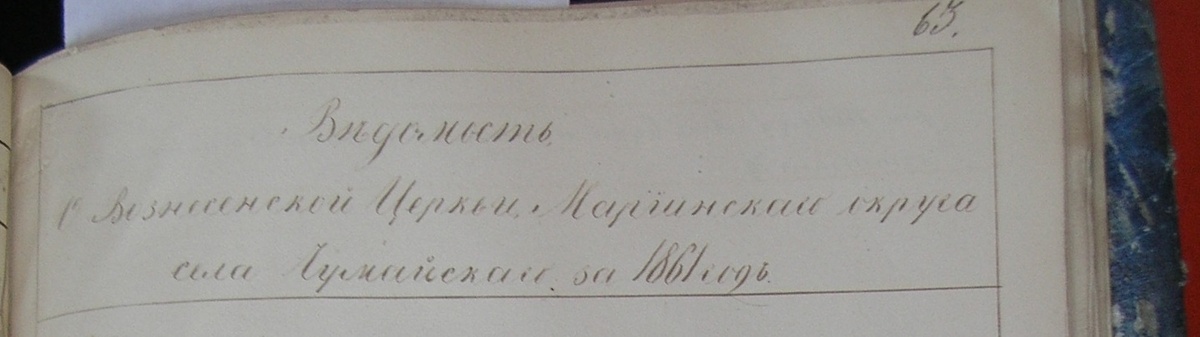 63.
Вѣдомость
О Вознесенской Церкви, Маріинскаго округа
села Чумайскаго за 1861 годъ.